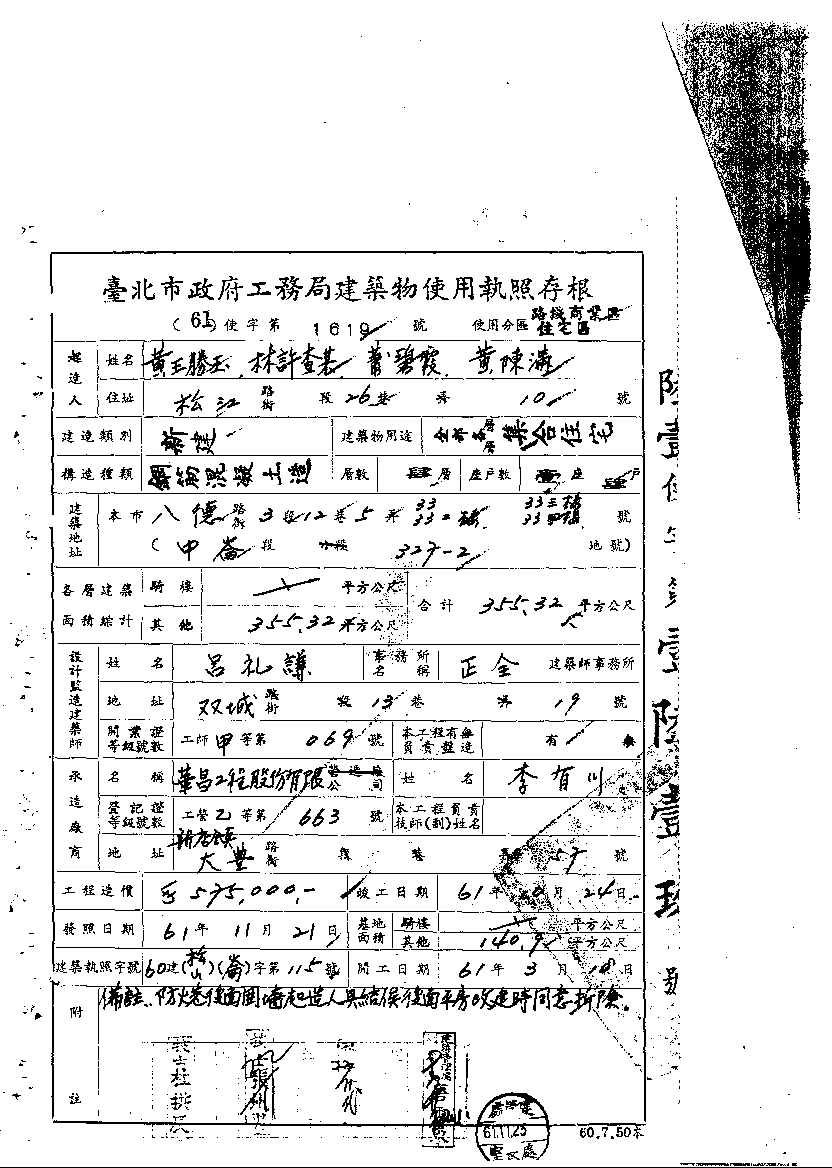 臺北市政府工務局建築物使用執照存根
(61)使字第 1619 號 使用分區 路線商業區 住宅區
起造人 姓名 黃王勝玉 林許查某 蕭碧霞 黃陳滿
住址 松江 路街 段 26巷 弄 10 號
建造類別 新建 建築物用途 全部各層 集合住宅
構造種類 鋼筋混凝土造 層數 肆層 座戶數 壹座 肆戶
建築地址 本市 八德 路街 3段12巷5弄 33 33二號 33三號 33四號 號
(中崙段 小段 327-2 地號)
各層建築面積綜計 騎樓 平方公尺 合計 355.32 平方公尺
其他 355.32 平方公尺
設計監造建築師 姓名 呂礼謙 事務所名稱 正全 建築師事務所
地址 双城 路街 段 13巷 弄 19 號
開業證等級號數 工師甲等第 069 號 本工程有無負責監造 有 無
承造廠商 名稱 華昌工程股份有限公司 營造廠 姓名 李有川
登記證等級號數 工營乙等第 663 號 本工程負責技師(副)姓名
地址 新店 大豐 路街 段 巷 弄 57 號
工程造價 575,000,- 竣工日期 61年10月24日
發照日期 61年11月21日 基地面積 騎樓 平方公尺
其他 140.9 平方公尺
建築執照字號 60建(松山)(崙)字第115號 開工日期 61年3月18日
附註 備註、防火巷後面圍墻起造人具結俟後面平房改建時同意拆除。
61.11.25
60.7.50本
陸壹使字第壹陸壹玖號